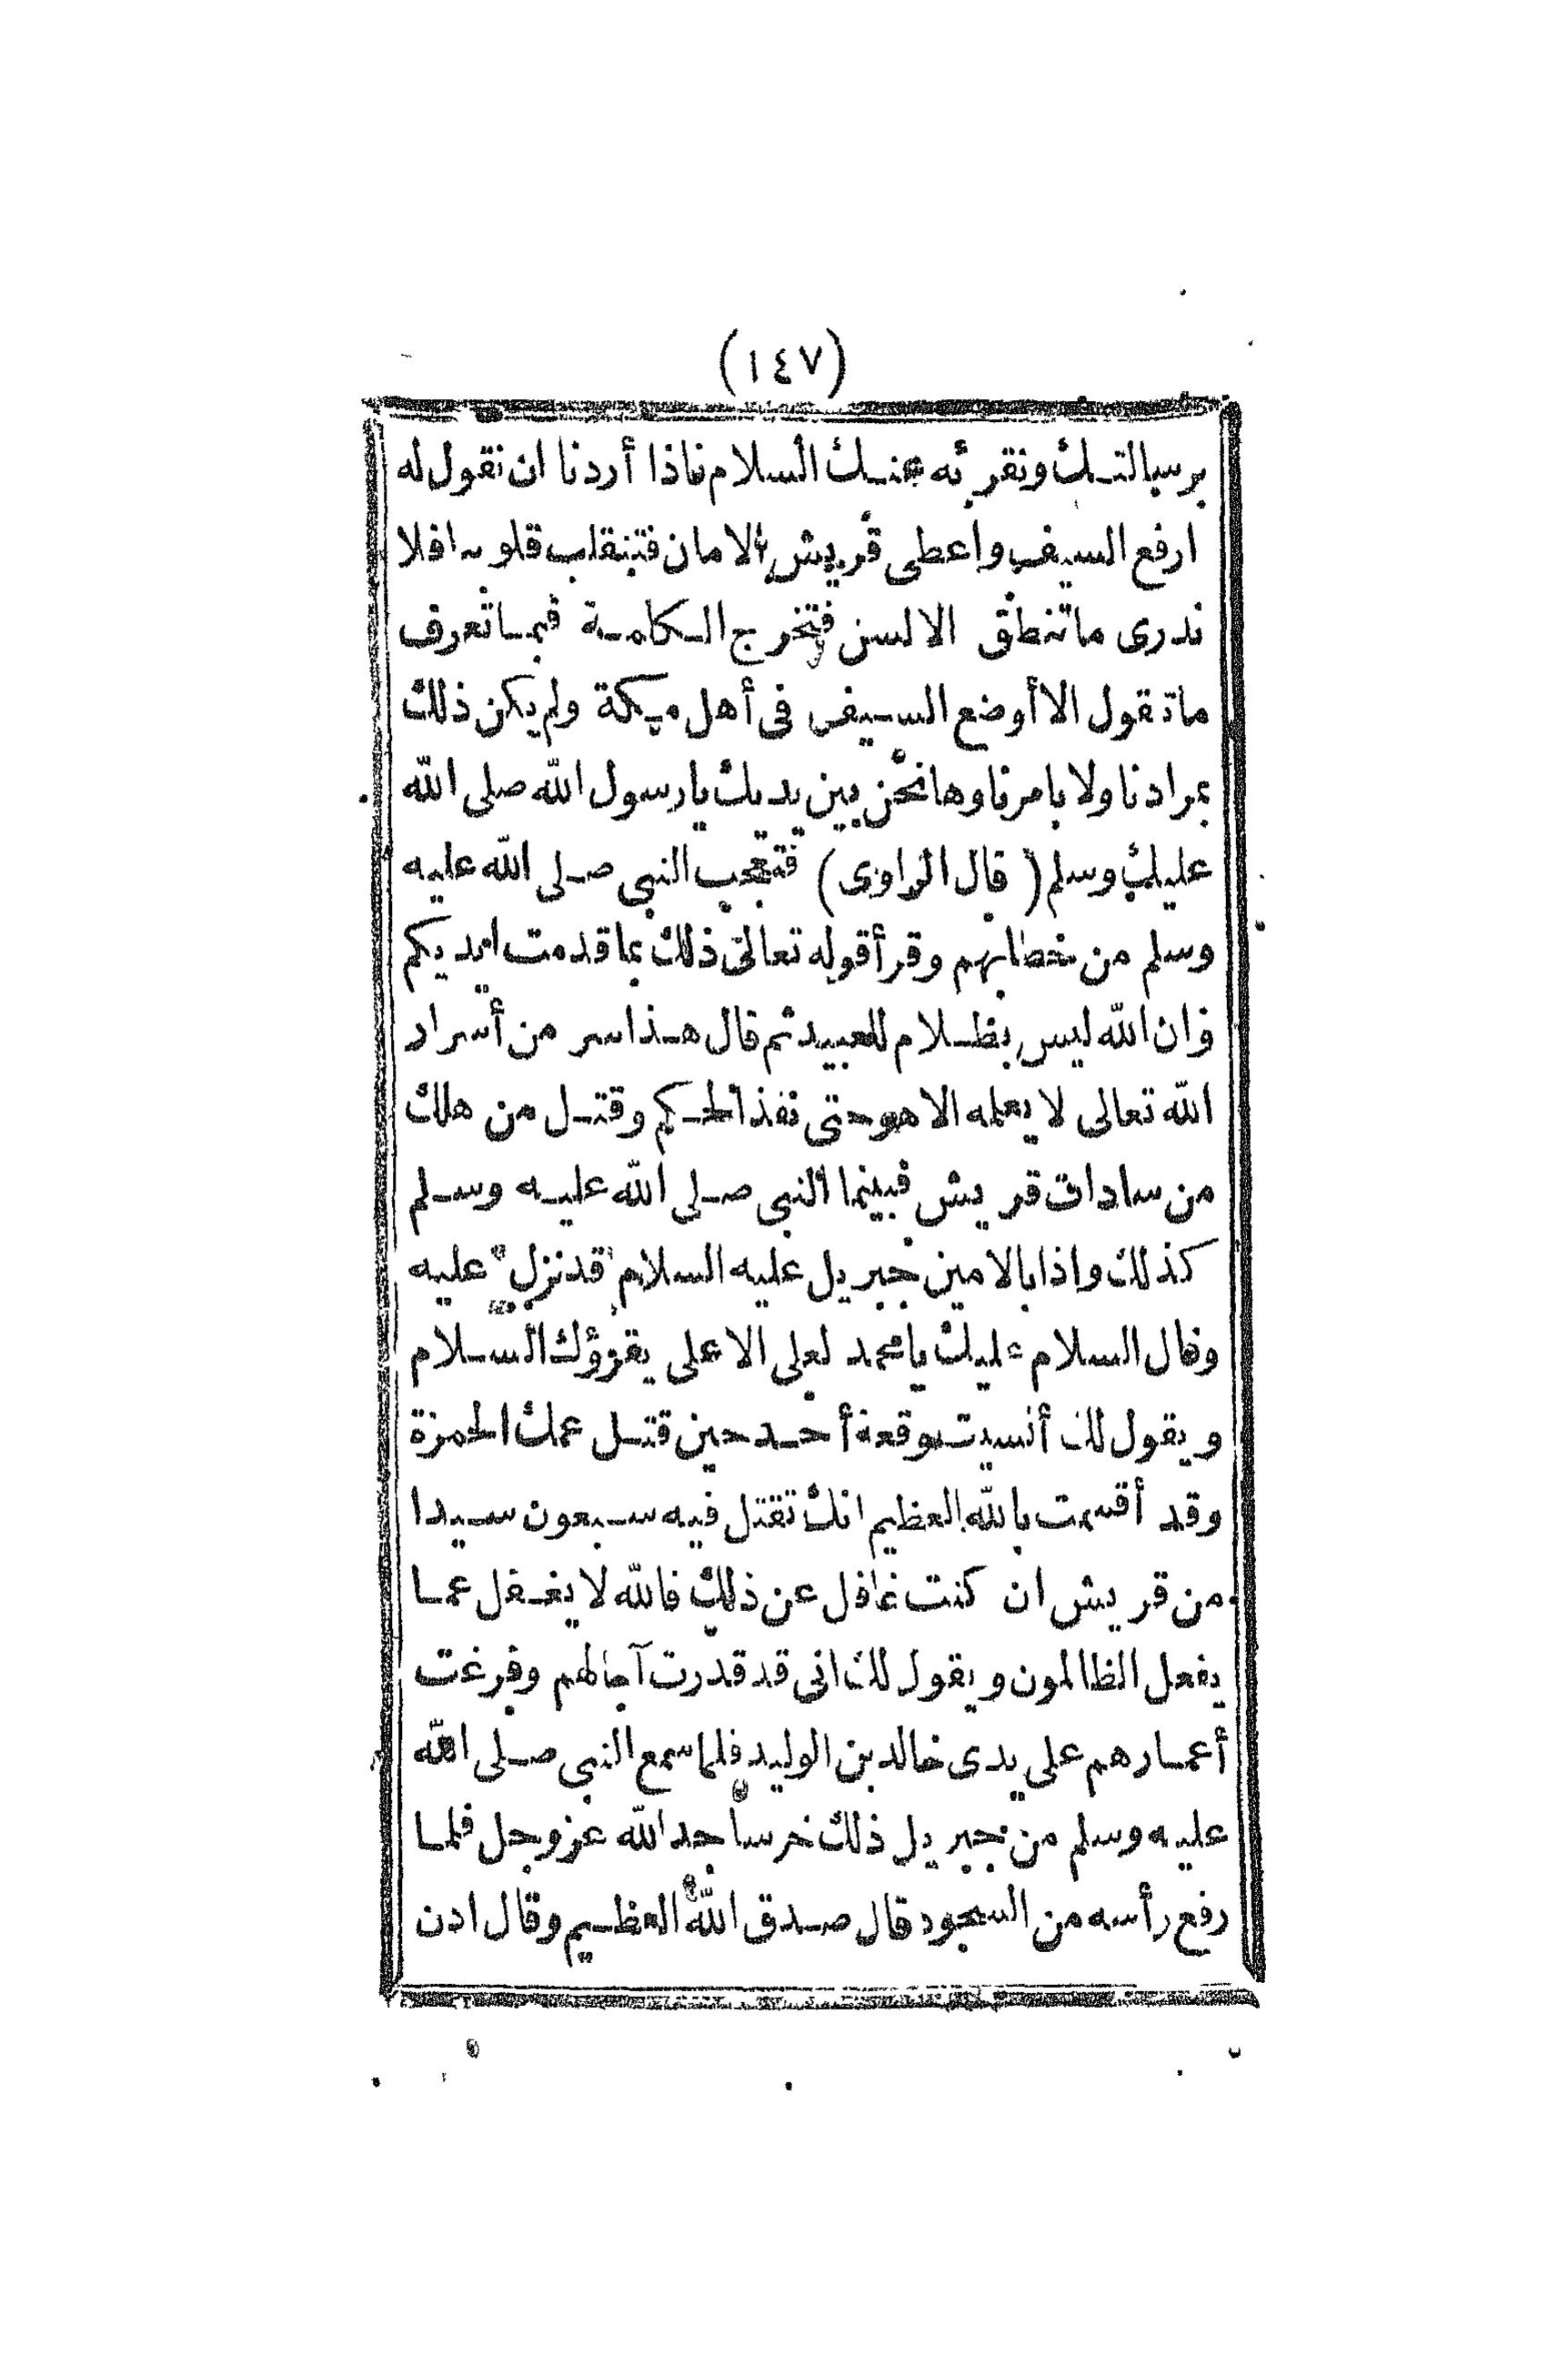 (١٤٧)
برسالتك ونقرئه عنك السلام فاذا أردنا ان نقول له
ارفع السيف واعطى قريش الامان فتنقلب قلوبنا فلا
ندرى ما تنطق الالسن فتخرج الكلمة فما تعرف
ما تقول الا أوضع السيف فى أهل مكة ولم يكن ذلك
بمرادنا ولا بامرنا وها نحن بين يديك يا رسول الله صلى الله
عليك وسلم (قال الراوى) فتعجب النبى صلى الله عليه
وسلم من خطابهم وقرأ قوله تعالى ذلك بما قدمت ايديكم
وان الله ليس بظلام للعبيد ثم قال هذا سر من أسرار
الله تعالى لا يعلمه الا هو حتى نفذ الحكم وقتل من هلك
من سادات قريش فبينما النبى صلى الله عليه وسلم
كذلك واذا بالامين جبريل عليه السلام قد نزل عليه
وقال السلام عليك يا محمد لعلى الاعلى يقرؤك السلام
ويقول لك أنسيت وقعة أحد حين قتل عمك الحمزة
وقد أقسمت بالله العظيم انك تقتل فيه سبعون سيدا
من قريش ان كنت غافل عن ذلك فالله لا يغفل عما
يفعل الظالمون ويقول لك انى قد قدرت آجالهم وفرغت
أعمارهم على يدى خالد بن الوليد فلما سمع النبى صلى الله
عليه وسلم من جبريل ذلك خر ساجد الله عز وجل فلما
رفع رأسه من السجود قال صدق الله العظيم وقال ادن